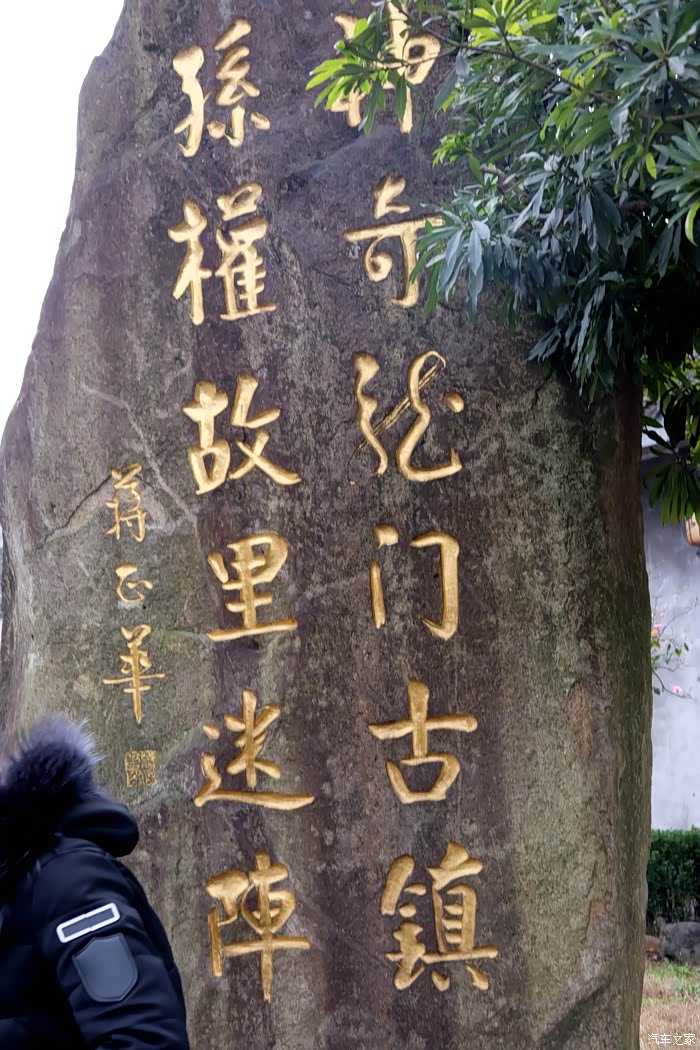 神奇龙门古鎮
孫權故里迷陣
蒋正華
汽车之家